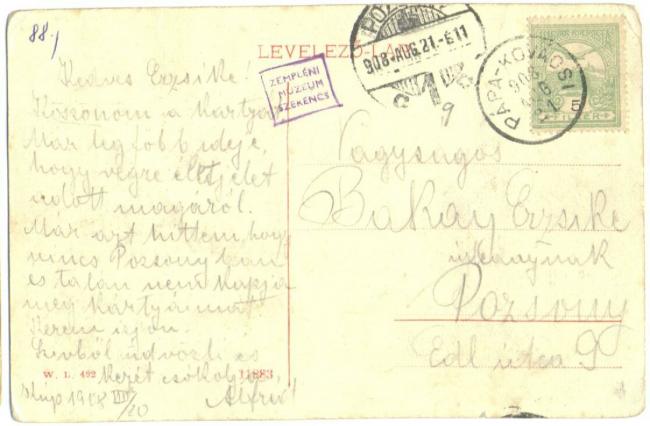 88.)
LEVELEZŐ-LAP
Kedves Erzsike!
Köszönöm a kártyát
Már legfőbb ideje,
hogy végre életjelet
adott magáról.
Már azt hittem, hogy
nincs Pozsonyban
és talán nem kapja
meg kártyáimat
Kérem írjon.
Szívből üdvözli és
kezét csókolja
Alfréd
1908 VIII/20
W. L. 492
11883
ZEMPLÉNI
MÚZEUM
SZERENCS
POZSONY
908 AUG. 21.-É 11
1
9
PÁPA-KOVÁCSI
908
MAGYAR KIR. POSTA
5
FILLÉR
Nagyságos
Bakay Erzsike
úrleánynak
Pozsony
Edl utca 9